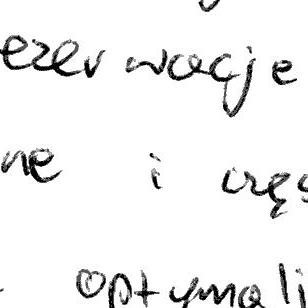 ezerwacje
ne i częs
optymali